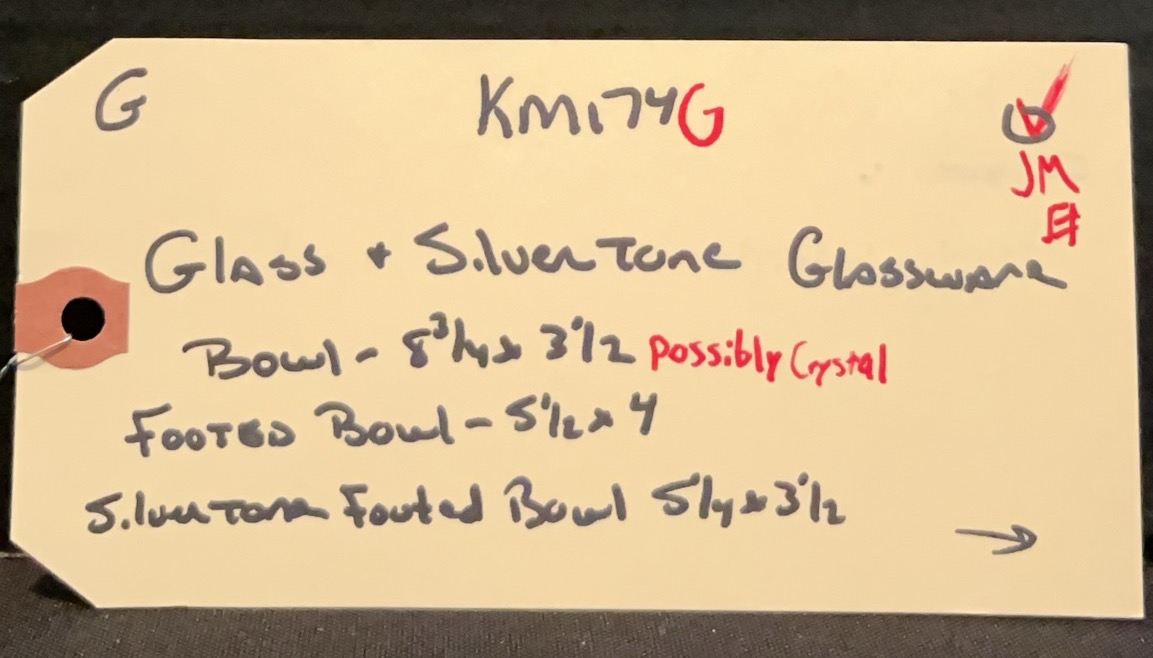 G KM174G
JM
Glass + Silvertone Glassware
Bowl - 8 3/4 x 3 1/2 possibly Crystal
Footed Bowl - 5 1/2 x 4
Silvertone Footed Bowl 5 1/4 x 3 1/2 →